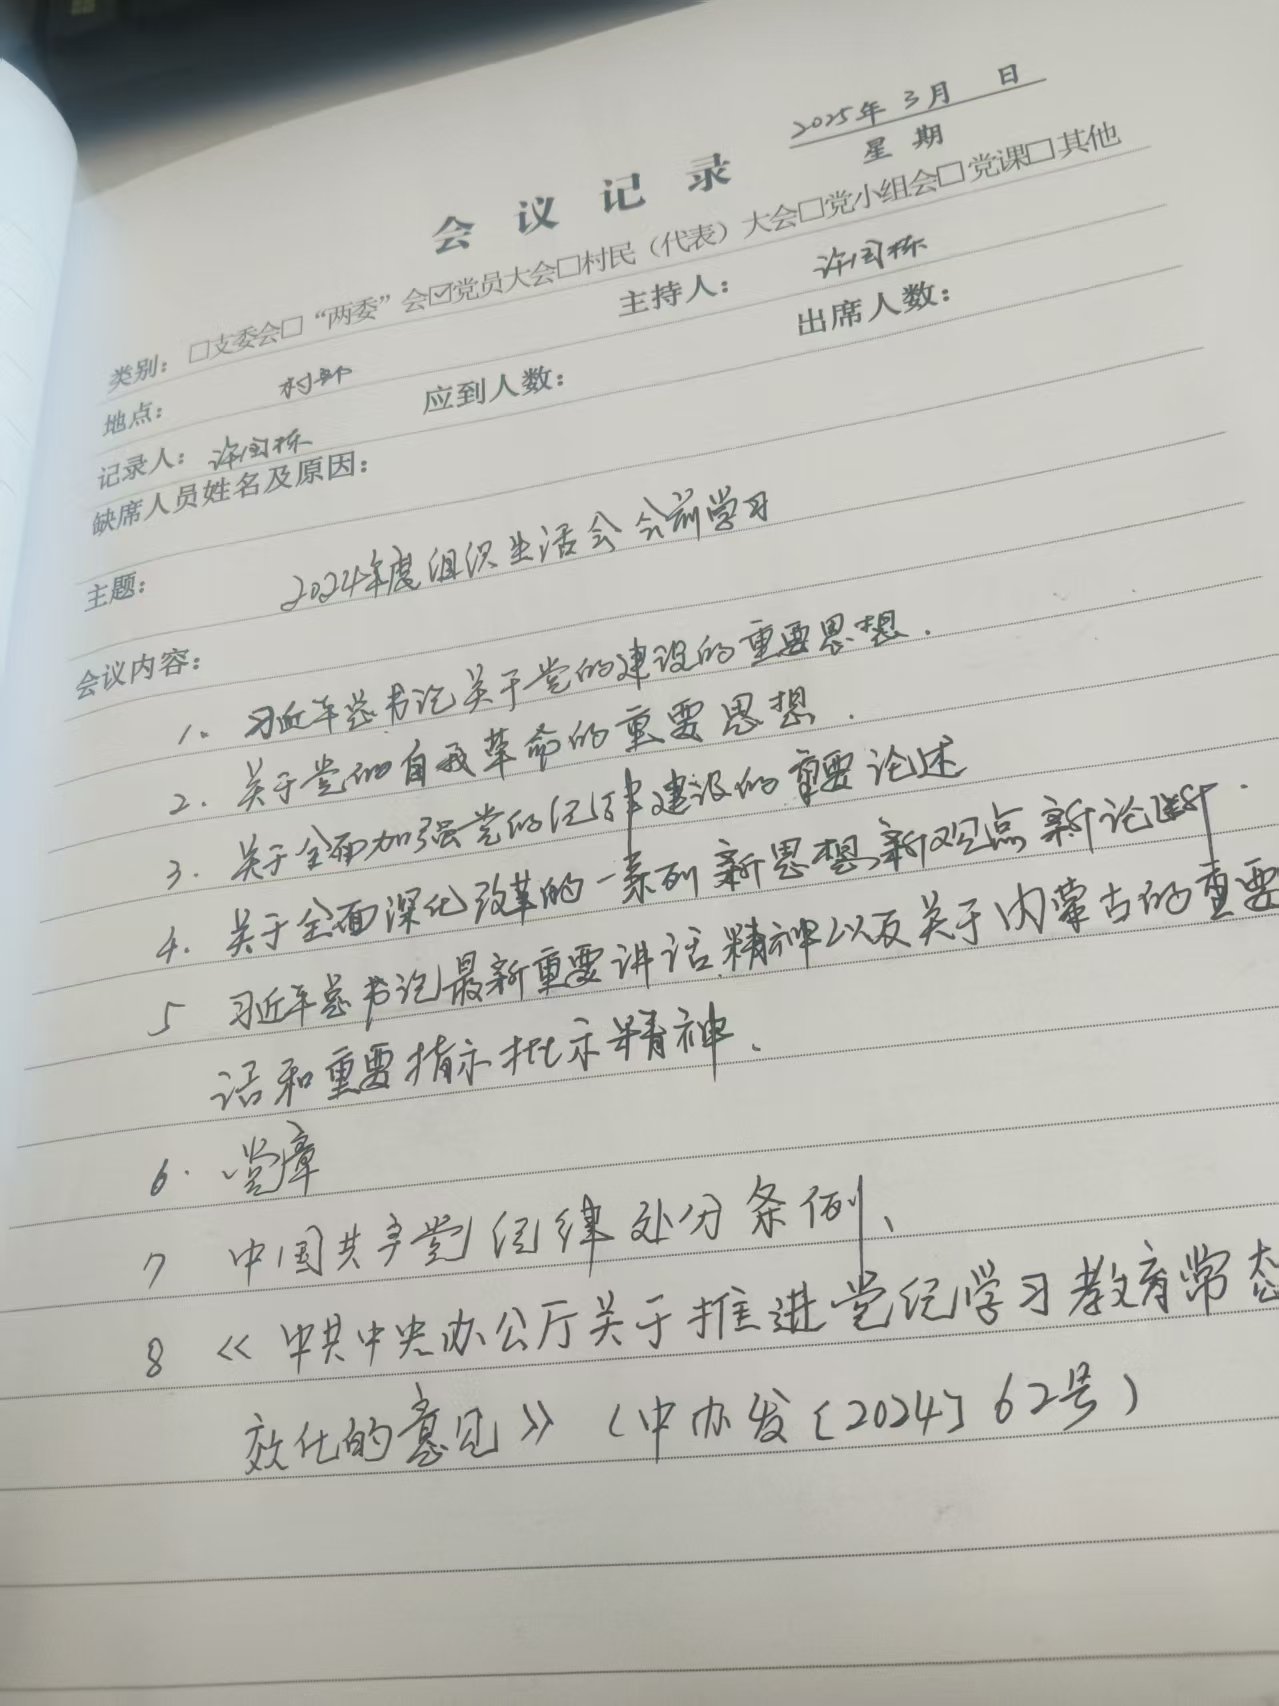 2025年3月 日
星 期
会 议 记 录
类别：□支委会□“两委”会☑党员大会□村民（代表）大会□党小组会□党课□其他
地点： 村部 主持人： 许国栋
记录人： 许国栋 应到人数： 出席人数：
缺席人员姓名及原因：
主题： 2024年度组织生活会会前学习
会议内容：
1. 习近平总书记关于党的建设的重要思想.
2. 关于党的自我革命的重要思想.
3. 关于全面加强党的纪律建设的重要论述
4. 关于全面深化改革的一系列新思想、新观点、新论断.
5 习近平总书记最新重要讲话精神以及关于内蒙古的重要
话和重要指示批示精神、
6. 党章
7 中国共产党纪律处分条例、
8 《中共中央办公厅关于推进党纪学习教育常态
效化的意见》（中办发〔2024〕62号）